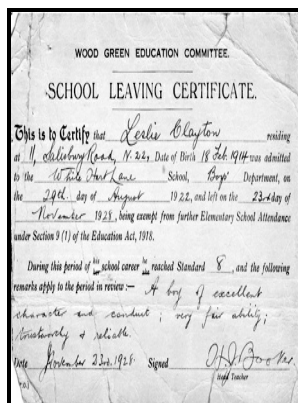 WOOD GREEN EDUCATION COMMITTEE.
SCHOOL LEAVING CERTIFICATE.
This is to Certify that Leslie Clayton residing
at 11, Salisbury Road, N.22, Date of Birth 18 Feb. 1914 was admitted
to the White Hart Lane School, Boys' Department, on
the 29th day of August 1922, and left on the 23rd day of
November 1928, being exempt from further Elementary School Attendance
under Section 9 (1) of the Education Act, 1918.
During this period of his school career he reached Standard 8, and the following
remarks apply to the period in review:— A boy of excellent
character and conduct; very fair ability;
trustworthy & reliable.
Date November 23rd. 1928. Signed
Head Teacher